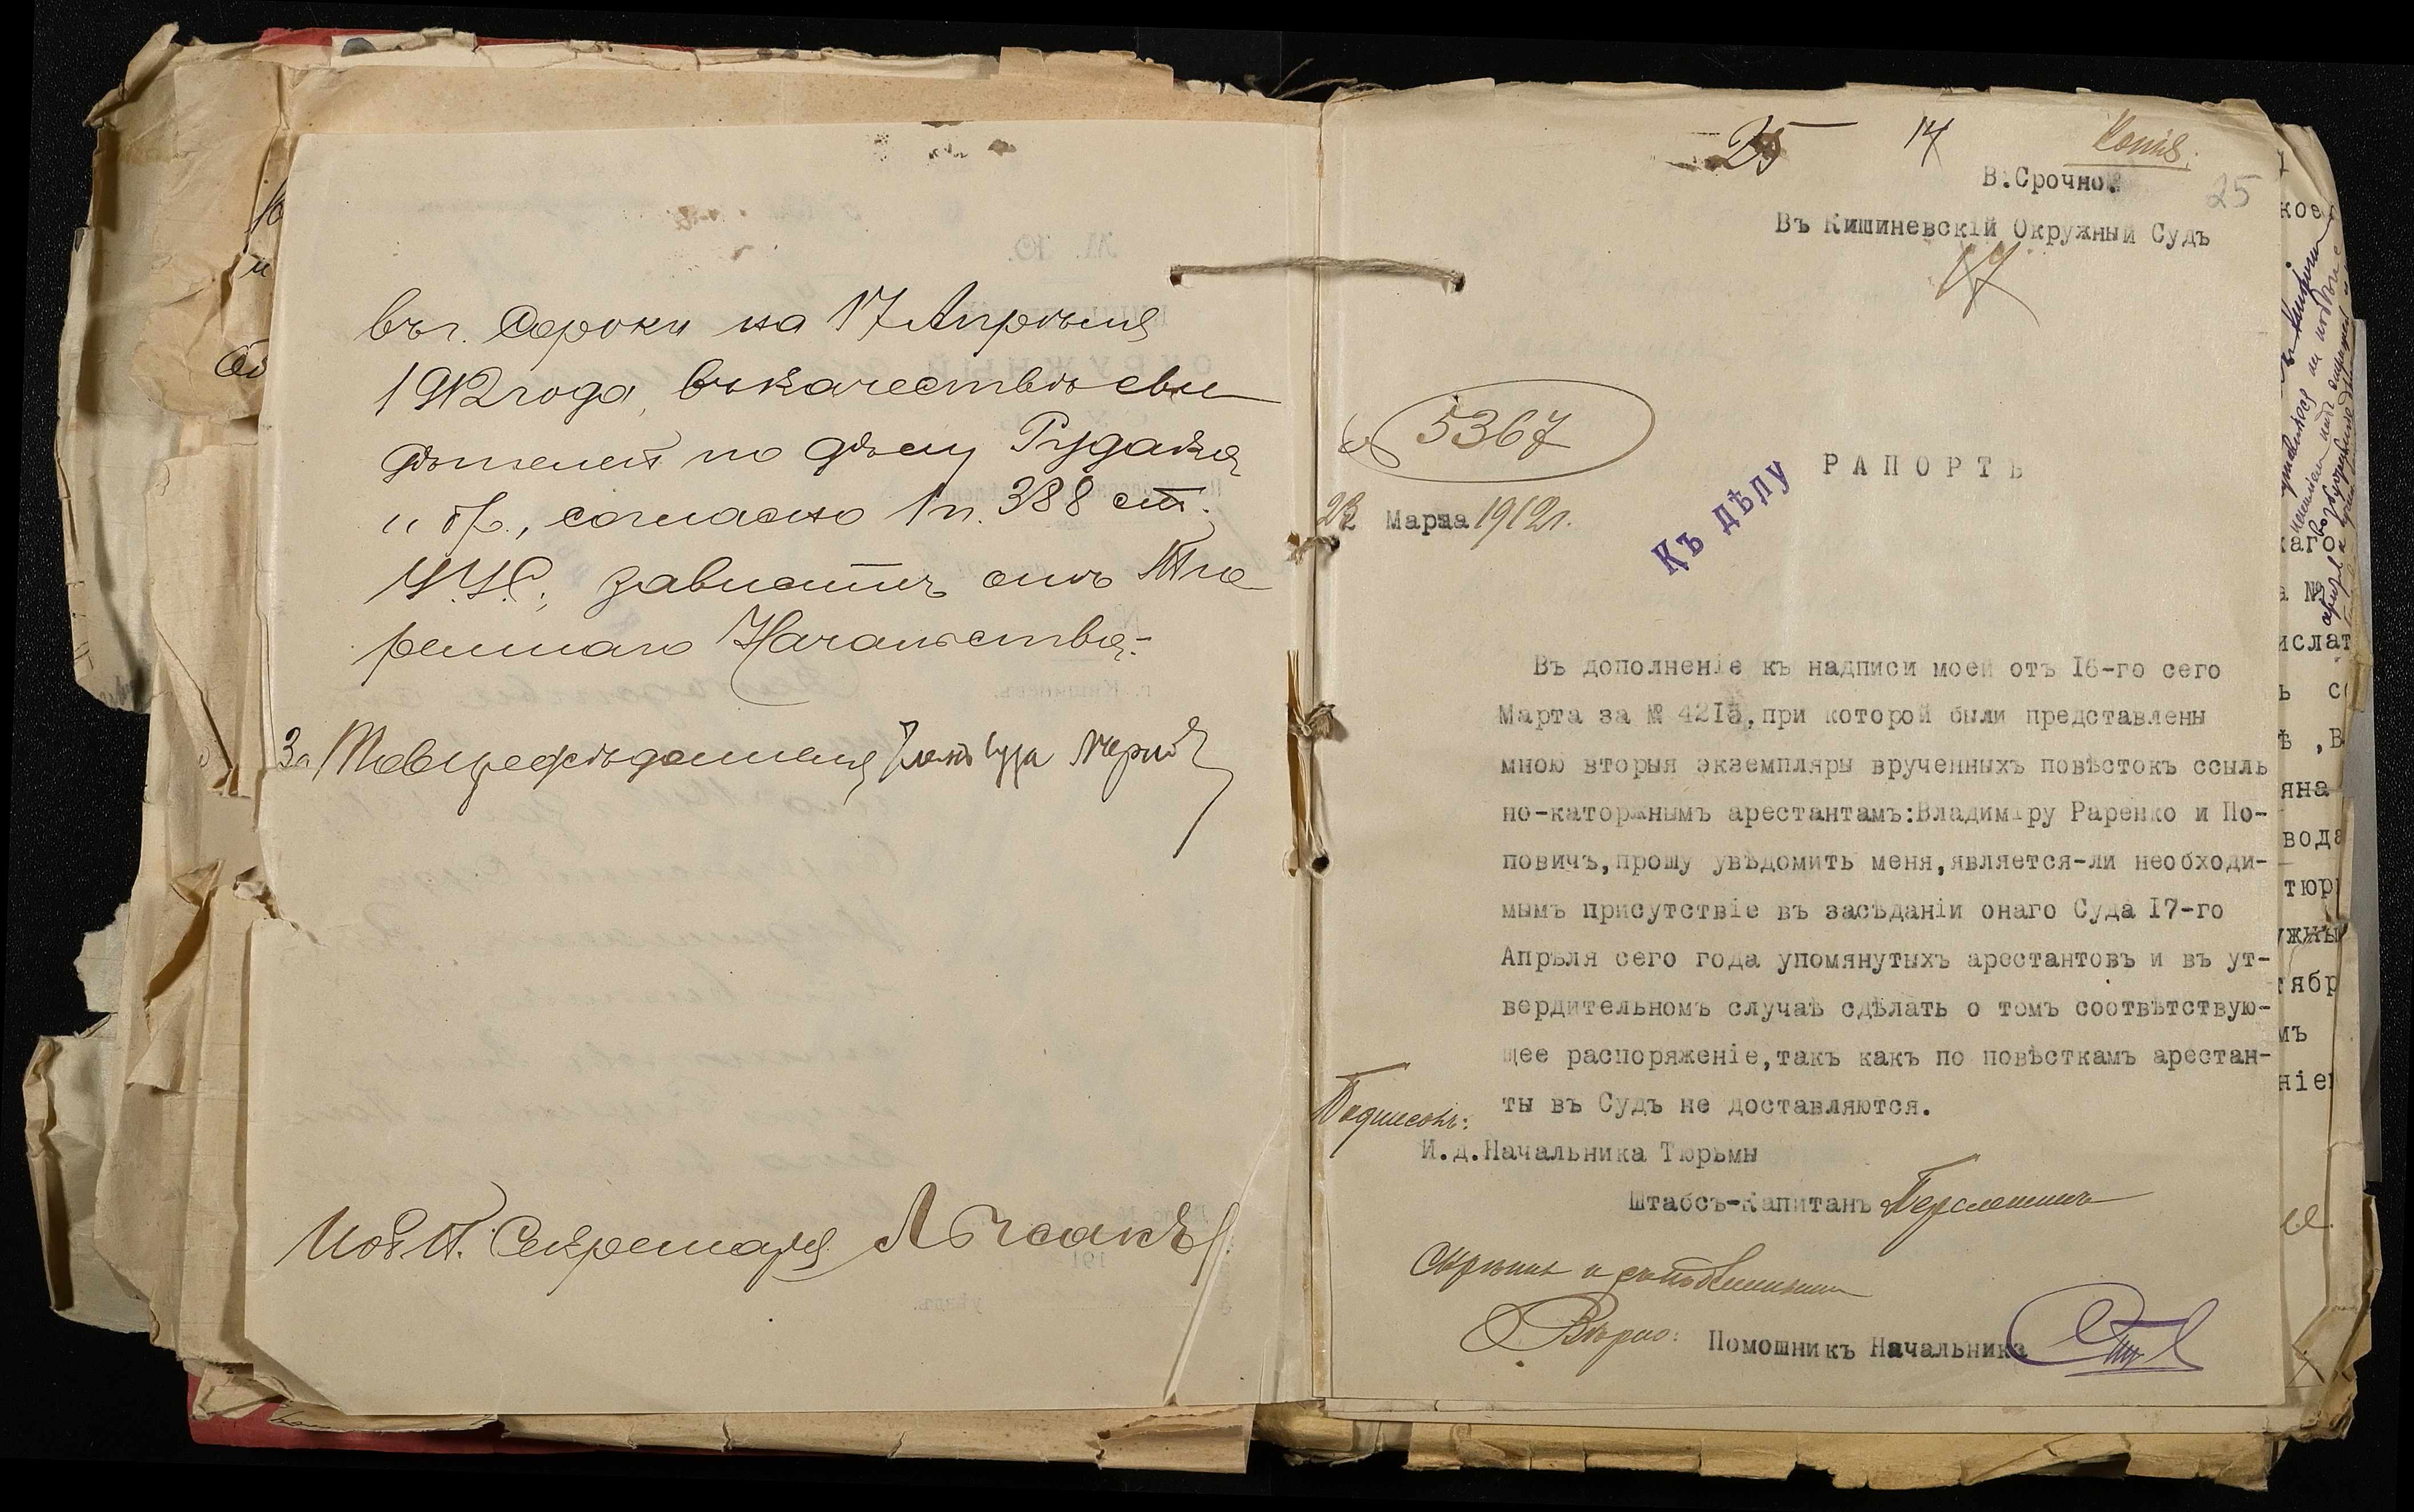 въ г. Сороки на 17 Апрѣля
1912 года, въ качествѣ сви
дѣтелей по дѣлу Рудака
и др., согласно 1 п. 388 ст.
У.У.С., зависитъ отъ Тю
ремнаго Начальства.-
За Тов. предсѣдателя Членъ Суда
Секретаря
25 14 Копія.
В.Срочно.
25
Въ Кишиневскій Окружный Судъ
5367
РАПОРТЪ
Къ дѣлу
23 Марта 1912 г.
Въ дополненіе къ надписи моей отъ 16-го сего
Марта за № 4215, при которой были представлены
мною вторыя экземпляры врученныхъ повѣстокъ ссыль
но-каторжнымъ арестантамъ:Владиміру Раренко и По-
повичъ,прошу увѣдомить меня,является-ли необходи-
мымъ присутствіе въ засѣданіи онаго Суда 17-го
Апрѣля сего года упомянутыхъ арестантовъ и въ ут-
вердительномъ случаѣ сдѣлать о томъ соотвѣтствую-
щее распоряженіе,такъ какъ по повѣсткамъ арестан-
ты въ Судъ не доставляются.
Подписалъ:
И.д.Начальника Тюрьмы
Штабсъ-Капитанъ
Вѣрно: Помошникъ Начальника